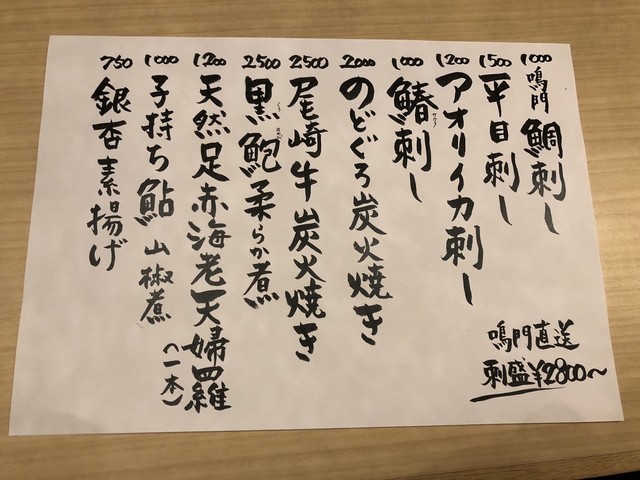 1000 鳴門 鯛刺し
1500 平目刺し
1200 アオリイカ刺し
1000 鰆刺し さわら
2000 のどぐろ炭火焼き
2500 尾崎牛炭火焼き
2500 黒鮑柔らか煮 くろ あわび
1200 天然足赤海老天婦羅(一本)
1000 子持ち鮎 山椒煮
750 銀杏素揚げ
鳴門直送
刺盛¥2800〜